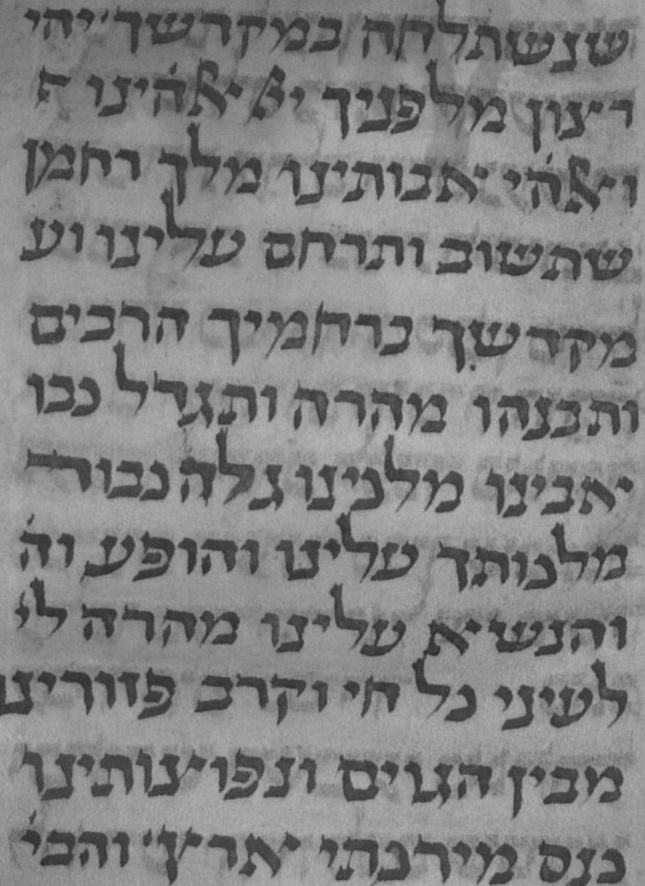 שנשתלחה במקדשך יהי
רצון מלפניך יי אלהינו ה
ואלהי אבותינו מלך רחמן
שתשוב ותרחם עלינו וע
מקדשך ברחמיך הרבים
ותבנהו מהרה ותגדל כבו
אבינו מלכינו גלה כבוד
מלכותך עלינו והופע וה
והנשיא עלינו מהרה לי
לעיני כל חי וקרב פזורינו
מבין הגוים ונפוצותינו
כנס מירכתי ארץ והבי